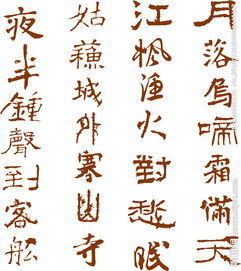 月落烏啼霜滿天
江楓漁火對愁眠
姑蘓城外寒山寺
夜半鍾聲到客舩